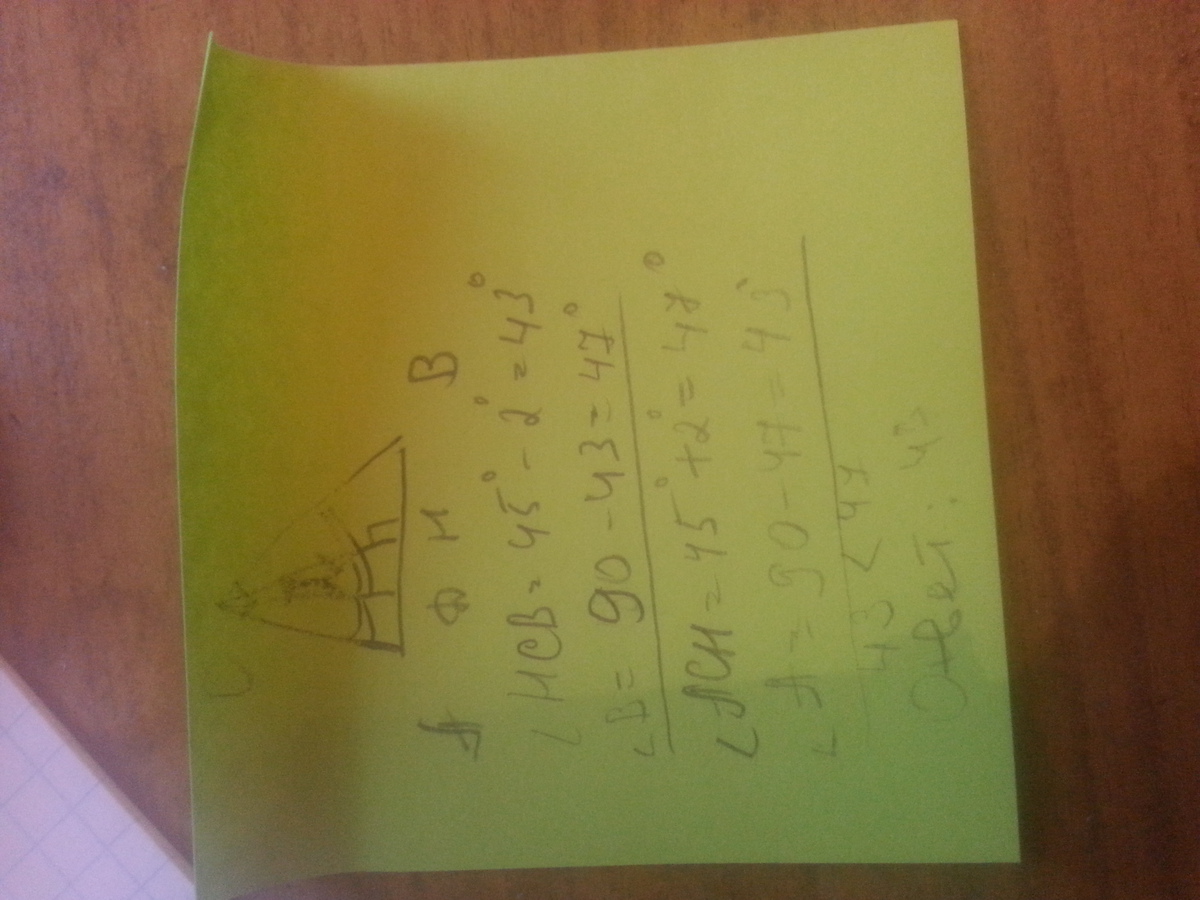 C
А Ф Н В
∠НСВ = 45° - 2° = 43°
∠В = 90 - 43 = 47°
∠АСН = 45° + 2° = 47°
∠А = 90 - 47 = 43°
43 < 47
Ответ: 43